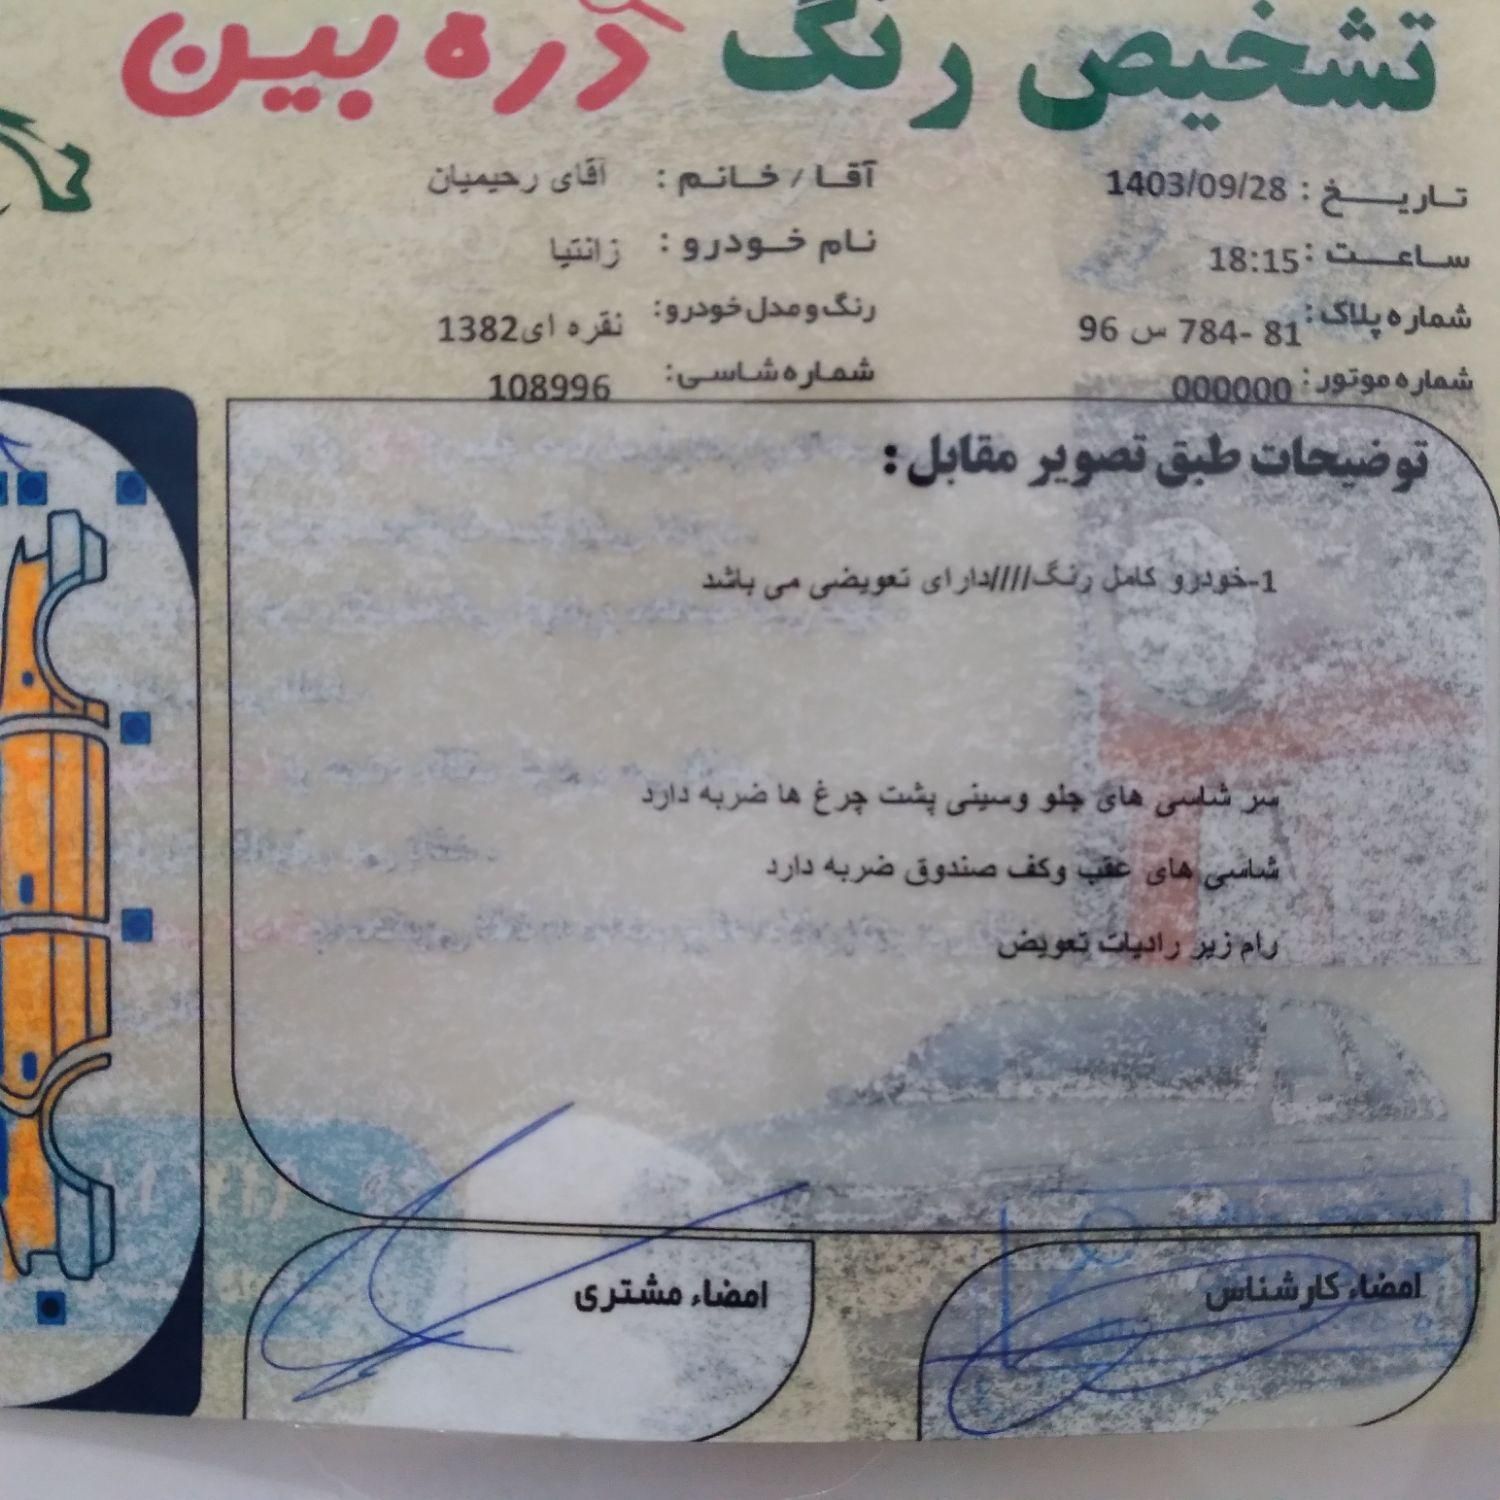 تشخیص رنگ ذره بین
تاریخ : 1403/09/28
آقا / خانم : آقای رحیمیان
ساعت : 18:15
نام خودرو : زانتیا
شماره پلاک : 81 -784 س 96
رنگ و مدل خودرو : نقره ای1382
شماره موتور : 000000
شماره شاسی : 108996
توضیحات طبق تصویر مقابل :
1-خودرو کامل رنگ////دارای تعویضی می باشد
سر شاسی های جلو وسینی پشت چرغ ها ضربه دارد
شاسی های عقب وکف صندوق ضربه دارد
رام زیر رادیات تعویض
امضاء کارشناس
امضاء مشتری